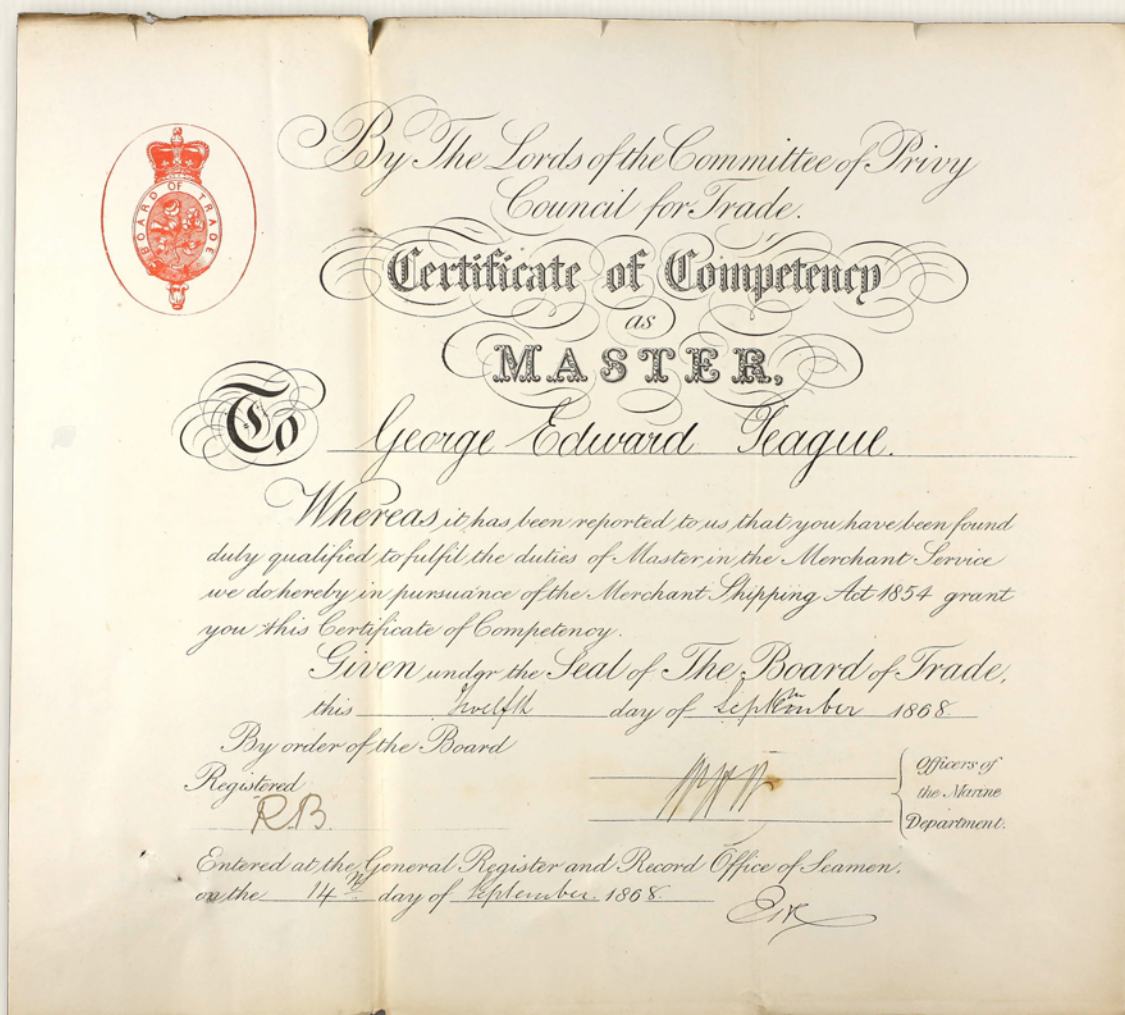 BOARD OF TRADE
By The Lords of the Committee of Privy
Council for Trade.
Certificate of Competency
as
MASTER,
To George Edward Teague.
Whereas it has been reported to us that you have been found
duly qualified to fulfil the duties of Master in the Merchant Service
we do hereby in pursuance of the Merchant Shipping Act 1854 grant
you this Certificate of Competency.
Given under the Seal of The Board of Trade,
this Twelfth day of September 1868.
By order of the Board
Registered
R.B.
Officers of
the Marine
Department.
Entered at the General Register and Record Office of Seamen.
on the 14th day of September 1868.